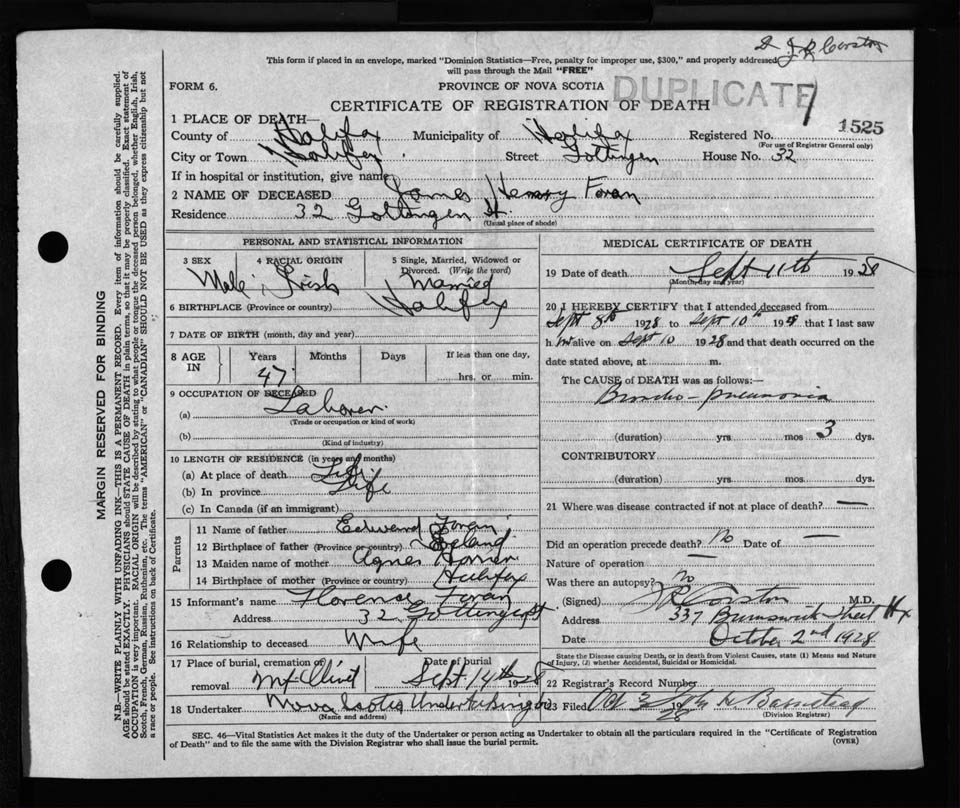 J R Corston
This form if placed in an envelope, marked "Dominion Statistics—Free, penalty for improper use, $300," and properly addressed,
will pass through the Mail "FREE"
FORM 6.
PROVINCE OF NOVA SCOTIA
DUPLICATE
CERTIFICATE OF REGISTRATION OF DEATH
1525
1 PLACE OF DEATH—
County of Halifax Municipality of Halifax Registered No.
(For use of Registrar General only)
City or Town Halifax Street Gottingen House No. 32
If in hospital or institution, give name
2 NAME OF DECEASED James Henry Foran
Residence 32 Gottingen St.
(Usual place of abode)
PERSONAL AND STATISTICAL INFORMATION
3 SEX 4 RACIAL ORIGIN 5 Single, Married, Widowed or
Divorced. (Write the word)
Male Irish Married
6 BIRTHPLACE (Province or country) Halifax
7 DATE OF BIRTH (month, day and year)
8 AGE IN Years Months Days If less than one day,
47 hrs. or min.
9 OCCUPATION OF DECEASED
(a) Laborer
(Trade or occupation or kind of work)
(b)
(Kind of industry)
10 LENGTH OF RESIDENCE (in years and months)
(a) At place of death Life
(b) In province Life
(c) In Canada (if an immigrant)
Parents
11 Name of father Edward Foran
12 Birthplace of father (Province or country) Ireland
13 Maiden name of mother Agnes
14 Birthplace of mother (Province or country) Halifax
15 Informant's name Florence Foran
Address 32 Gottingen St
16 Relationship to deceased Wife
17 Place of burial, cremation or Date of burial
removal Mt Olivet Sept. 14th 1928
18 Undertaker Nova Scotia Undertaking Co
(Name and address)
MEDICAL CERTIFICATE OF DEATH
19 Date of death Sept 11th 1928
(Month, day and year)
20 I HEREBY CERTIFY that I attended deceased from
Sept 8th 1928 to Sept 10th 1928 that I last saw
h im alive on Sept 10 1928 and that death occurred on the
date stated above, at m.
The CAUSE of DEATH was as follows:—
Broncho-pneumonia
(duration) yrs mos 3 dys.
CONTRIBUTORY
(duration) yrs. mos dys.
21 Where was disease contracted if not at place of death? —
Did an operation precede death? No Date of —
Nature of operation —
Was there an autopsy? No
(Signed) J R Corston M.D.
Address 337 Brunswick Street Hx
Date October 2nd 1928
State the Disease causing Death, or in death from Violent Causes, state (1) Means and Nature
of Injury, (2) whether Accidental, Suicidal or Homicidal.
22 Registrar's Record Number
23 Filed Oct 3 1928
(Division Registrar)
SEC. 46—Vital Statistics Act makes it the duty of the Undertaker or person acting as Undertaker to obtain all the particulars required in the "Certificate of Registration
of Death" and to file the same with the Division Registrar who shall issue the burial permit.
(OVER)
MARGIN RESERVED FOR BINDING
N.B.—WRITE PLAINLY WITH UNFADING INK—THIS IS A PERMANENT RECORD. Every item of information should be carefully supplied.
AGE should be stated EXACTLY. PHYSICIANS should STATE CAUSE OF DEATH in plain terms, so that it may be properly classified. Exact statement of
OCCUPATION is very important. RACIAL ORIGIN will be described by stating to what people or tongue the deceased person belonged, whether English, Irish,
Scotch, French, German, Russian, Ruthenian, etc. The terms "AMERICAN" or "CANADIAN" SHOULD NOT BE USED as they express citizenship but not
a race or people. See instructions on back of Certificate.